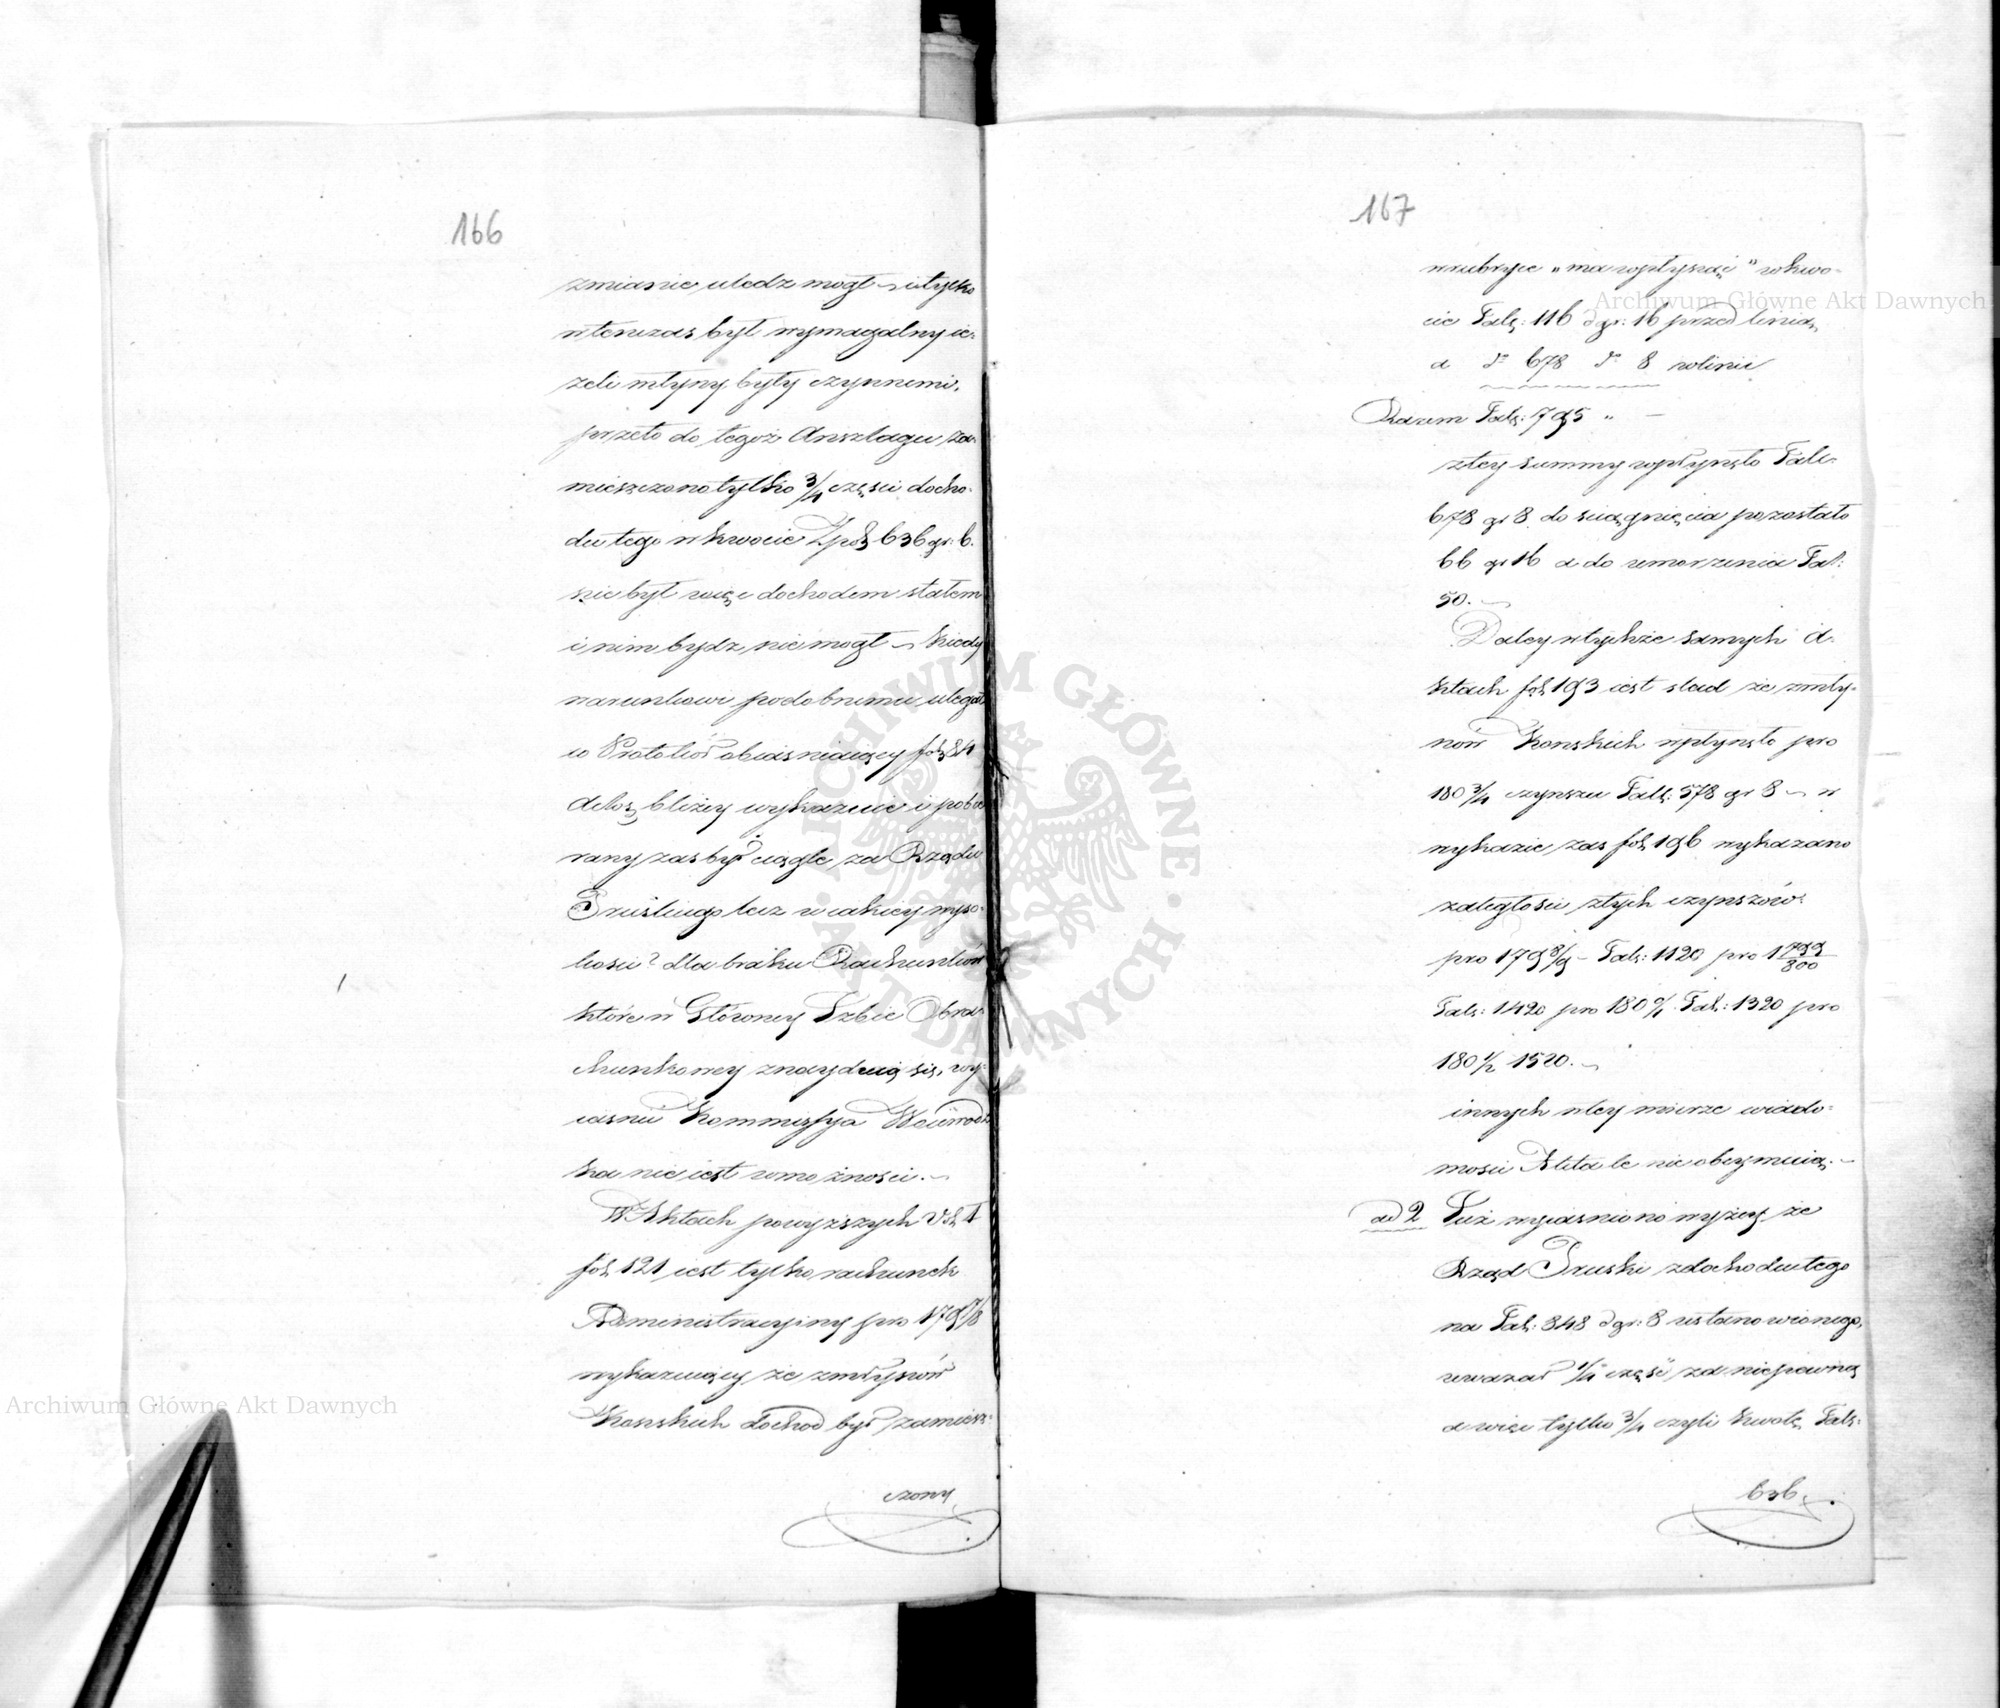 166
zmianie uledz mogł – i tylko
w tenczas był wymagalny ie-
żeli młyny były czynnemi,
przeto do tegoż Anszlagu za-
mieszczono tylko 3/4 części docho-
du tego w kwocie Zpol 636 gr: 6.
nie był więc dochodem stałem
i nim bydz nie mogł – kiedy
warunkowi podobnemu ulegał
co Protokół obiasniaiący fol 84
Aktów bliżey wykazuie i pobie
rany zas był ciągle za Rządu
Pruskiego lecz w iakiey wyso-
kosci? dla braku Rachunków
które w Głównej Izbie Obra-
chunkowey znayduią się, wy-
iasnić Kommissyja Woiewodz
ka nie iest w możności. –
W Aktach powyższych Vol. I
fol. 121 iest tylko rachunek
Administracyiny pro 179 7/8
wykazuiący że z młynów
Konskich dochod był zamiesz-
czony
167
w rubryce „ma wpływać” w kwo-
cie Talr: 116 dgr: 16 przed linią,
a do 678 do 8 w linii
Razem Talr: 795 „ –
z tey summy wpłynęło Talr:
678 gr 8. do sciągnięcia pozostało
66 gr 16 a do umorzenia Tal:
50. –
Daley w tychże samych A-
ktach fol. 193 iest slad że z mły-
nów Konskich wpłynęło pro
180 3/4 czynszu Talr: 578 gr 8 – w
wykazie zas fol. 196 wykazano
zaległosci z tych czynszów.
pro 179 8/9 – Talr: 1120 pro 1 799/800
Talr: 1420 pro 180 0/1 Talr: 1320 pro
180 1/2 1520. –
innych w tey mierze wiado-
mosci Akta te nie obeymuią. –
ad 2 Iuż wyiasniono wyżey że
Rząd Pruski z dochodu tego
na Talr: 848 dgr: 8 ustanowionego,
uważał 1/4 część za niepewną
a więc tylko 3/4 czyli kwotę Talr:
636.
Archiwum Główne Akt Dawnych
Archiwum Główne Akt Dawnych
ARCHIWUM GŁÓWNE
AKT DAWNYCH